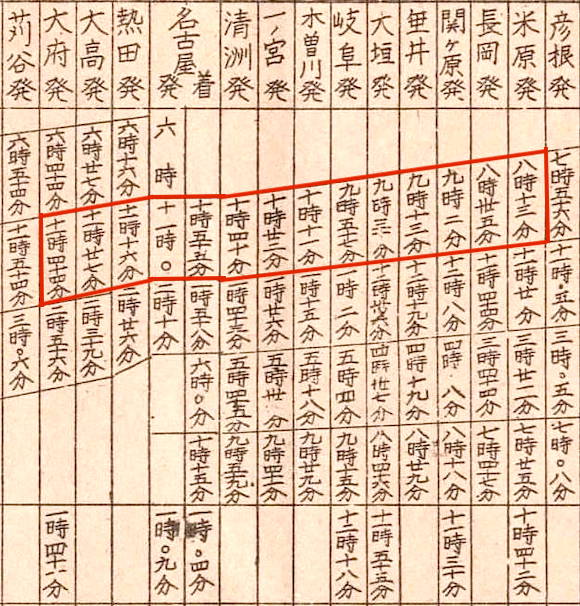 彦根発 七時五十六分 十一時〇五分 三時〇五分 七時〇八分
米原発 八時十三分 十一時廿分 三時廿二分 七時廿五分 十時四十二分
長岡発 八時卅五分 十一時四十四分 三時四十四分 七時四十七分
関ヶ原発 九時二分 十二時八分 四時八分 八時十八分 十一時三十分
垂井発 九時十三分 十二時十九分 四時十九分 八時廿九分
大垣発 四時卅七分 八時四十六分 十一時五十五分
岐阜発 九時五十七分 一時二分 五時四分 九時十五分 十二時十八分
木曽川発 十時十一分 一時十五分 五時十八分 九時廿九分
一ノ宮発 十時廿二分 一時廿六分 五時卅分
清洲発 十時四十分 一時四十三分 五時四十五分 九時五十九分
名古屋 着 十時五十五分 一時五十八分 六時〇分 十時十五分 一時〇四分
発 六時 十一時〇 二時十分 一時〇九分
熱田発 六時十六分 十一時十六分 二時廿六分
大高発 六時廿七分 十一時廿七分 二時三十九分
大府発 六時四十四分 十一時四十四分 二時五十六分 一時四十一分
苅谷発 六時五十四分 十一時五十四分 三時〇六分